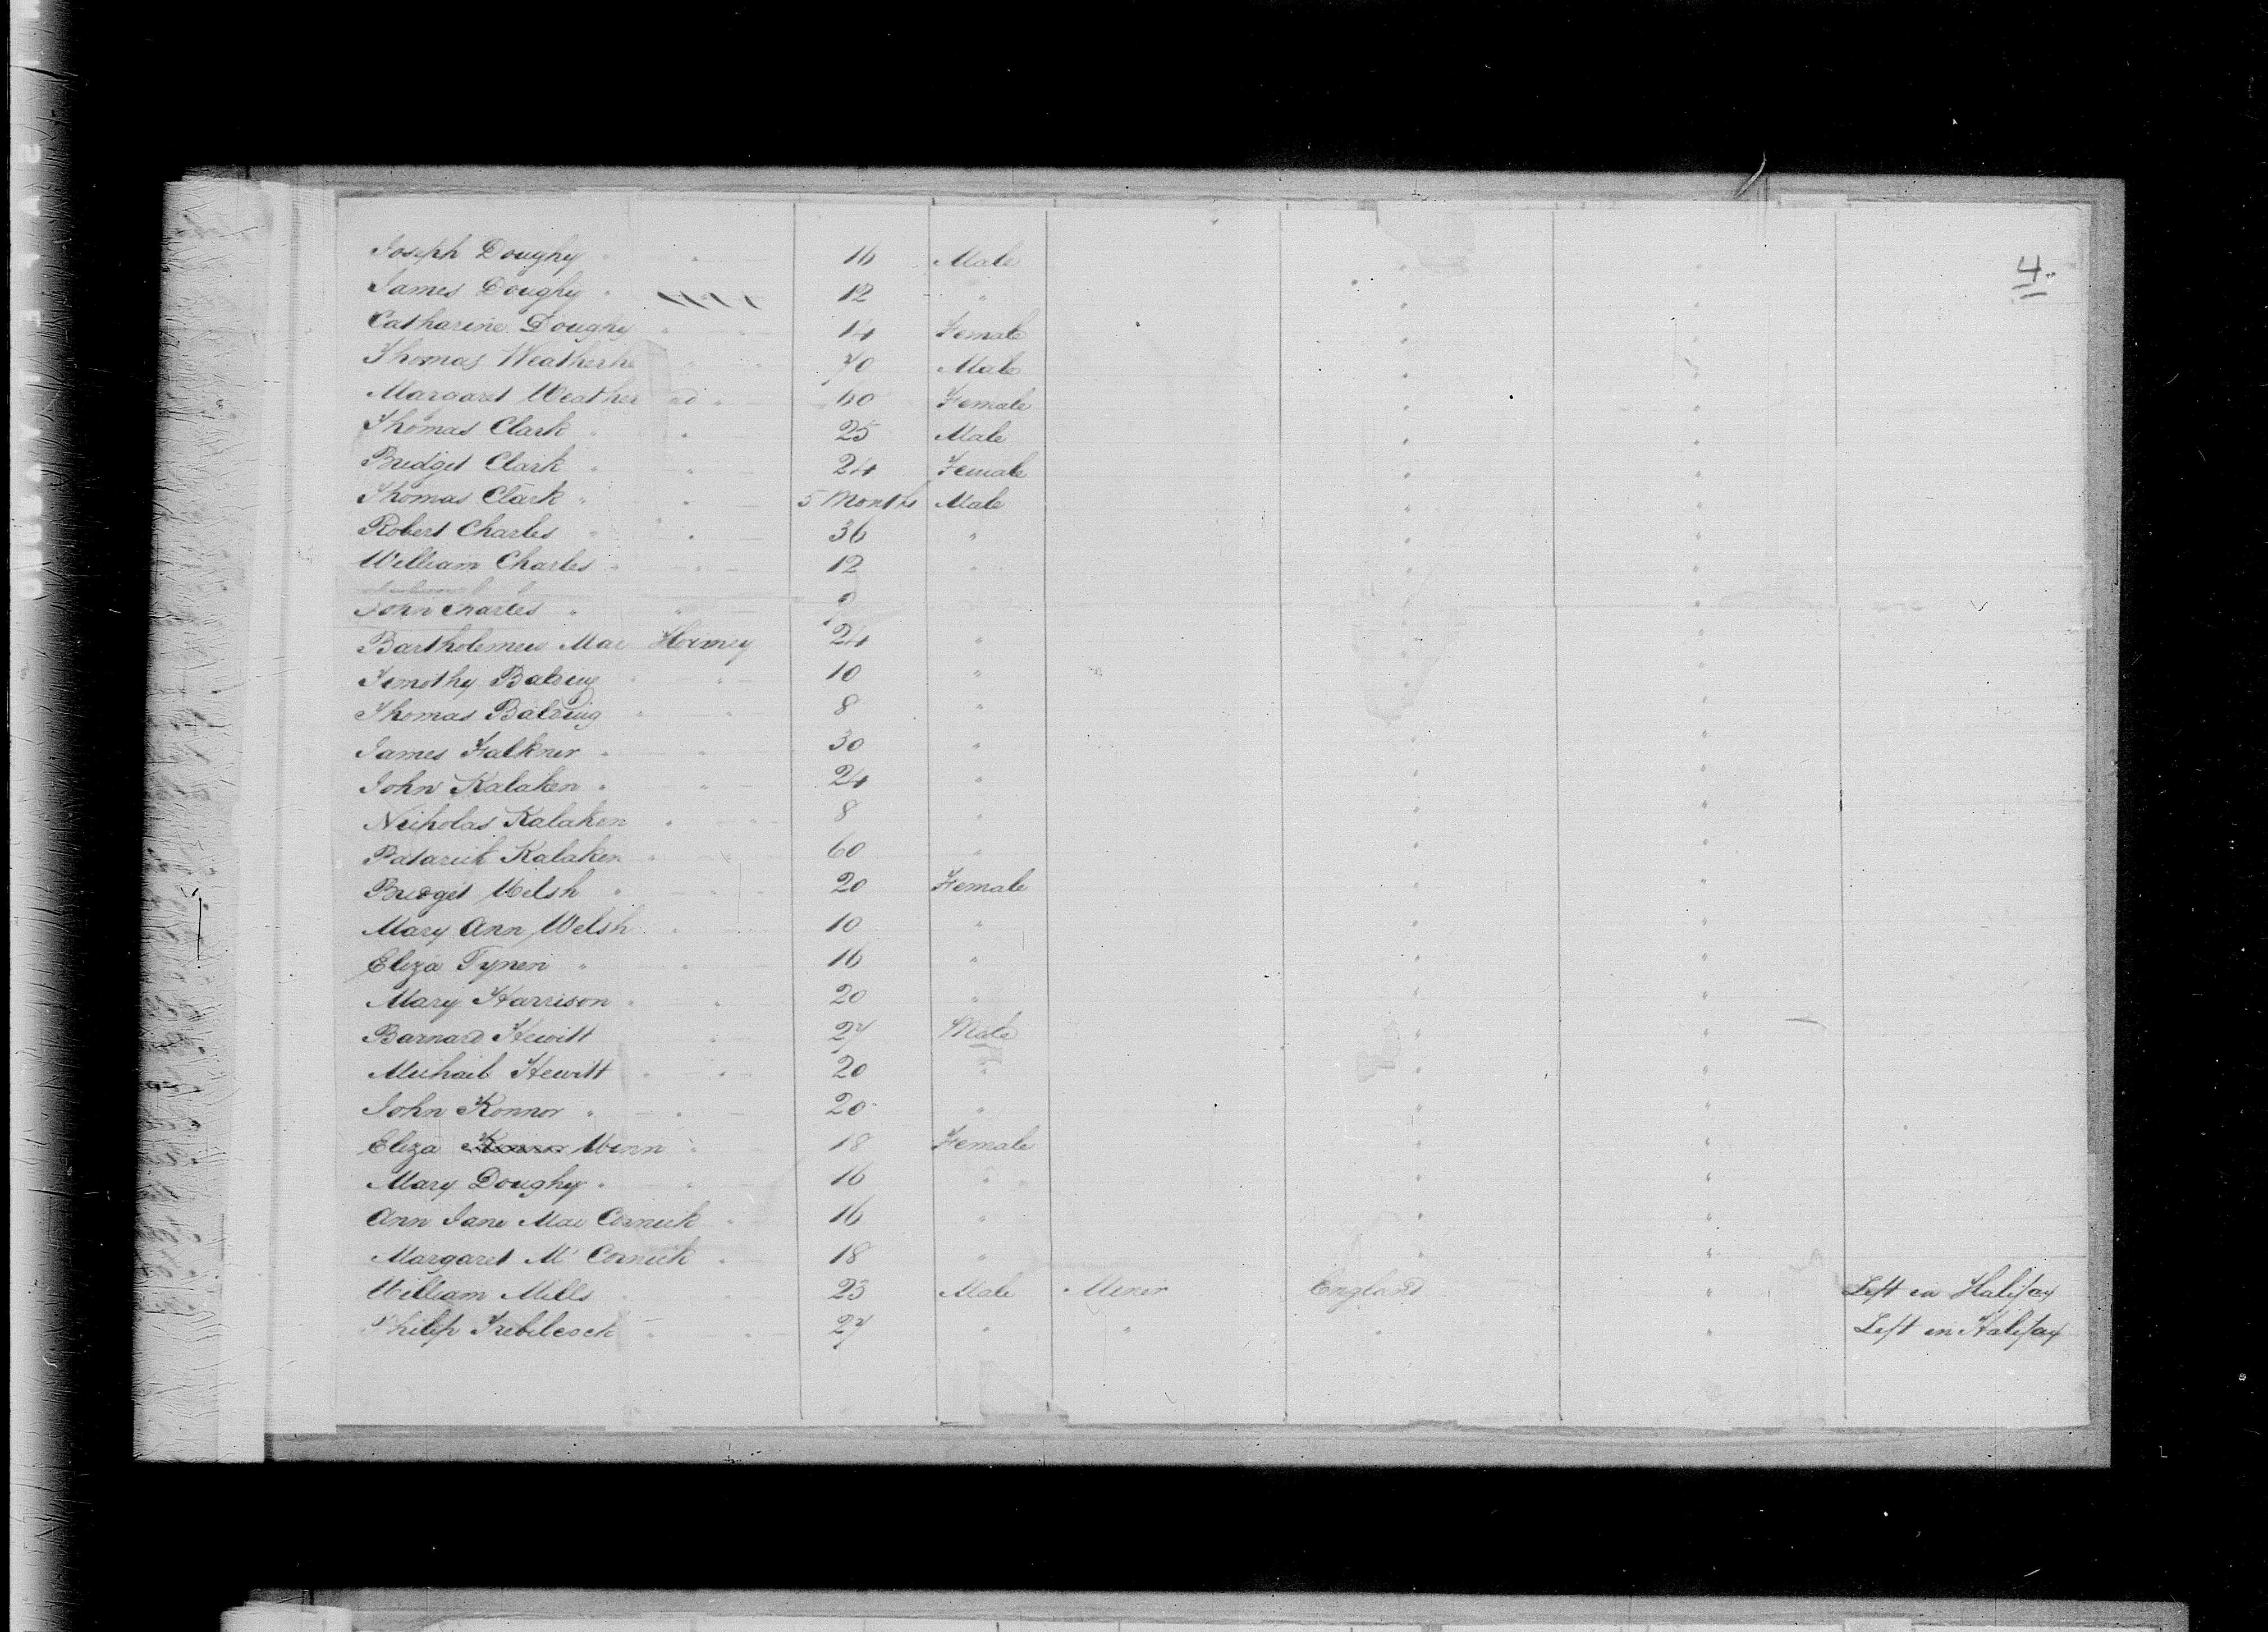 4.
Joseph Doughy " " 16 Male " "
James Doughy " 12 " " "
Catharine Doughy " " 14 Female " "
Thomas Weatherhe " " 70 Male " "
Margaret Weather ad " 60 Female " "
Thomas Clark " " 25 Male " "
Bridget Clark " " 24 Female " "
Thomas Clark " " 5 Months Male " "
Robert Charles " " 36 " " "
William Charles " " 12 " " "
John Charles " " "
Bartholemew Mac Horney 24 " " "
Timothy " " 10 " " "
Thomas " " 8 " " "
James Falkner " " 30 " " "
John Kalaken " " 24 " " "
Neiholas Kalaken " " 8 " " "
Patarick Kalaken " " 60 " " "
Bridget Welsh " " 20 Female " "
Mary Ann Welsh " 10 " " "
Eliza Tynen " " 16 " " "
Mary Harrison " " 20 " " "
Barnard Hewitt " 27 Male " "
Michail Hewitt " " 20 " " "
John Konnor " " 20 " " "
Eliza Konnor Winn " 18 Female " "
Mary Doughy " " 16 " " "
Ann Jane Mac Cormick " 16 " " "
Margaret Mc Cormick " 18 " " "
William Mills " " 23 Male Miner England " Left in Halifax
Philip Trebilcock " " 27 " " " " Left in Halifax